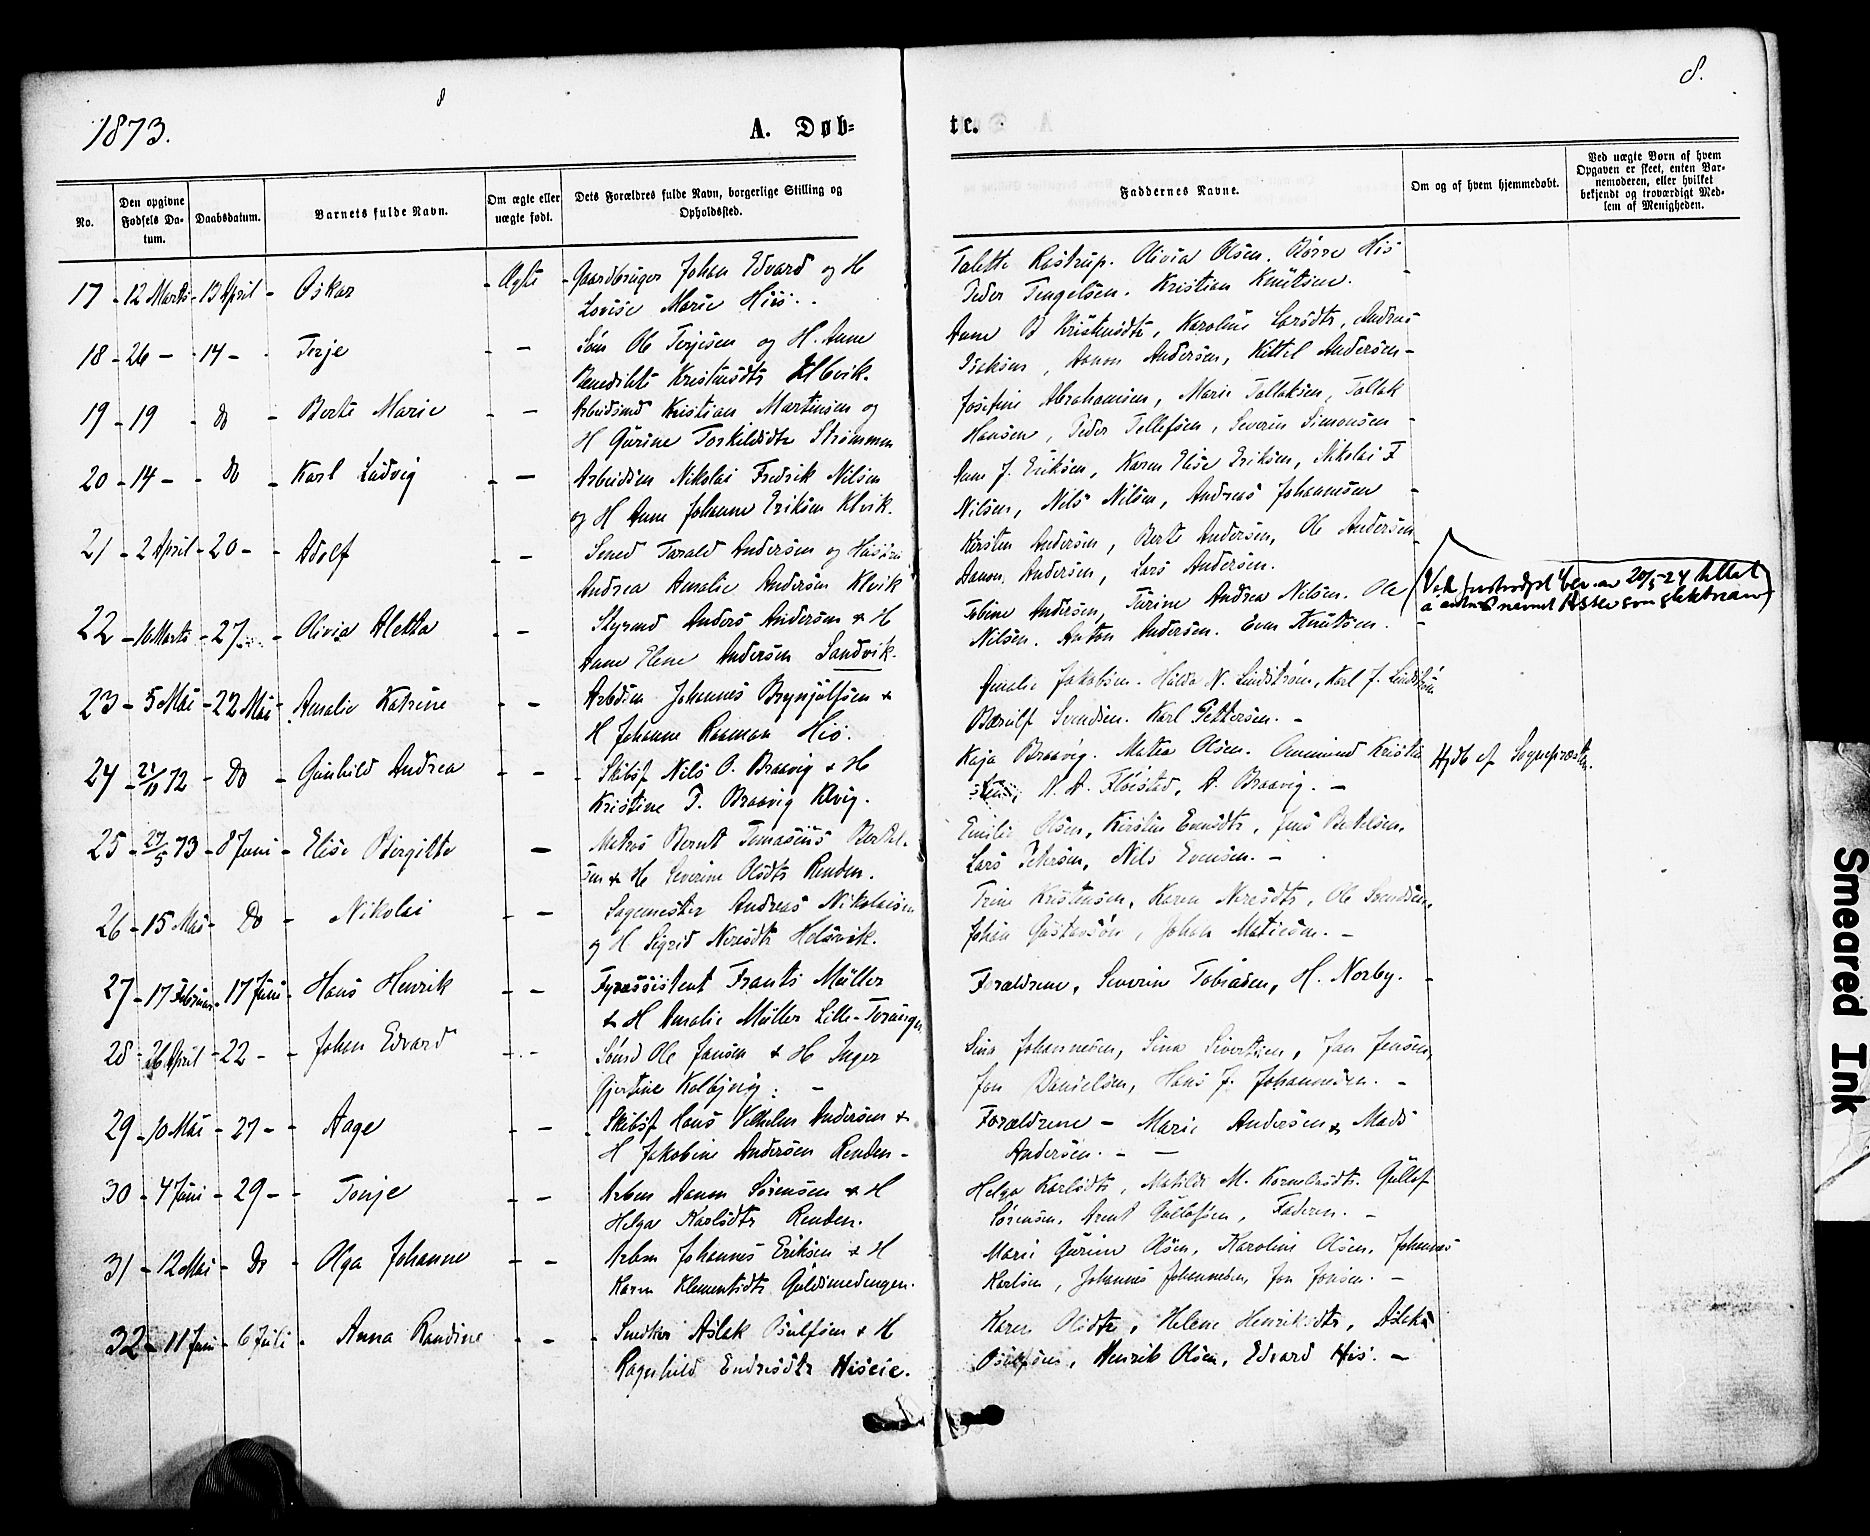 8
8.
1873.
A. Døb-
te.
No.
Den opgivne Fødsels Da-tum.
Daabsdatum.
Barnets fulde Navn.
Om ægte eller uægte født.
Dets Forældres fulde Navn, borgerlige Stilling og Opholdssted.
Faddernes Navne.
Om og af hvem hjemmedøbt.
Ved uægte Born af hvem Opgaven er skeet, enten Bar-nemoderen, eller hvilket bekjendt og troværdigt Med-lem af Menigheden.
17 - 12 Marts - 13 April - Oskar - Ægte - Gaardbruger Johan Edvard og H Talette Rostrup. Olivia Olsen. Børre His
Lovise Marie Hiis. Peder Tengelsen. Kristian Knutsen.
18 - 26 - 14 - Terje - Søm Ole Terjesen og H. Anne Anne B Kristensdtr, Karoline Larsdtr, Andreas
Benedikte Kristensdtr Klbvik. Isaksen, Aanon Andersen, Kittel Andersen -
19 - 19 - do - Berte Marie - Arbeidsmd Kristian Martinsen og Josefine Abrahamsen, Marie Tallaksen, Tallak
H Gurine Torkildsdtr Strømmen Hansen, Peder Tellefsen, Severin Simonsen -
20 - 14 - - Do - Karl Ludvig - Arbeidsm Nikolai Fredrik Nilsen Anne J. Eriksen, Karen Elise Eriksen, Nikolai F
og H Anne Johanne Eriksen Klvik. Nilsen, Nils Nilsen, Andreas Johannesen -
21 - 2 April - 20 - - Adolf - Smed Tarald Andersen og Hustru Kirsten Andersen, Berte Andersen, Ole Andersen
Andrea Amalie Andersen Klvik Aanon Andersen, Lars Andersen.
22 - 16 Marts - 27 - Olivia Aletta - Styrmd Anders Andersen & H Tobine Andersen, Turine Andrea Nilsen. Ole
Anne Elene Andersen Sandvik. Nilsen. Anton Andersen. Even Knutsen. -
(Ved justisdpt bev. av 20/5-24 tillat
å anta navnet Aske som slektsnavn)
23 - 5 Mai - 22 Mai - Amalie Katrine - Arbdsm Johannes Brynjulfsen & Amalie Jakobsen. Hilda N. Lindstrøm, Karl J. Lindstrøm
H Johanne Roaman His. Bærulf Svendsen. Karl Pettersen. -
24 - 21/10 72 - Do - Gunhild Andrea - Skibsf Nils O. Braavig & H Kaja Braavig. Matea Olsen. Ommund Kristen Hjdb af Sognepræsten.
Kristine P. Braavig Klvig. N. A. Fløistad, A. Braavig. -
25 - 27/5 73 - 8 Juni - Elise Birgitte - Matros Bernt Tomasius Bertel- Emilie Olsen, Kirsten Evensdtr, Jens Bertelsen,
sen & H Severine Olsdtr Renden. Lars Petersen, Nils Evensen. -
26 - 15 Mai - Do - Nikolai - Sagmester Andreas Nikolaisen Trine Kristensen, Karen Neresdtr, Ole Svendsen,
og H Sigrid Neresdtr Helsvik. Johan Gustavsøn, Johan Matiesen. -
27 - 17 Februar - 17 Juni - Hans Henrik - Fyrassistent Frants Müller Forældrene, Severin Tobiasen, H. Norby. -
& H Amalie Müller Lille-Torungen
28 - 26 April - 22 - - Johan Edvard - Sømd Ole Jansen & H Inger Sina Johannesen, Sina Sivertsen, Jan Jensen,
Gjertine Kolbjørg. - Jon Danielsen, Hans J. Johannesen. -
29 - 10 Mai - 27 - - Aage - Skibsf Hans Vilhelm Andersen & Forældrene - Marie Andersen & Mads
H Jakobine Andersen Renden - Andersen. -
30 - 4 Juni - 29 - - Tonje - Arbm Aanon Sørensen & H Helga Karlsdtr, Matilde M. Korneliusdtr. Gullof
Helga Karlsdtr Renden. Sørensen, Arent Gullofsen, Faderen. -
31 - 12 Mai - Do - Olga Johanne - Arbm Johannes Eriksen & H Marie Gurine Olsen, Karoline Olsen, Johannes
Karen Klementsdtr Guldsmedengen. Karlsen, Johannes Johannesen, Jon Jonsen. -
32 - 11 Juni - 6 Juli - Anna Randine - Snedker Aslak Osulfsen & H Karen Olsdtr, Helene Henriksdtr, Aslak
Ragnhild Endresdtr Hiseie. Osulfsen, Henrik Olsen, Edvard His. -
Smeared Ink